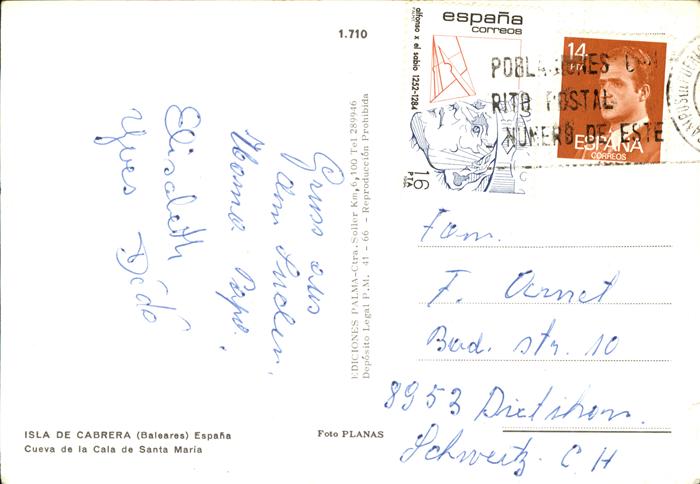 1.710
Gruss aus
dem Süden.
Mama Papa.
Elisabeth
Yves Dédé
EDICIONES PALMA-Ctra. Soller Km, 6,100 Tel 289946
Depósito Legal P.M. 41 - 66 - Reproducción Prohibida
ISLA DE CABRERA (Baleares) España
Cueva de la Cala de Santa María
Foto PLANAS
españa
correos
alfonso x el sabio 1252-1284
16
PTA
14
PTA
ESPAÑA
CORREOS
POBLACIONES CON
RITO POSTAL
NUMERO DE ESTE
Fam.
F. Arnet
Bad. str. 10
8953 Dietikon
Schweitz. C H